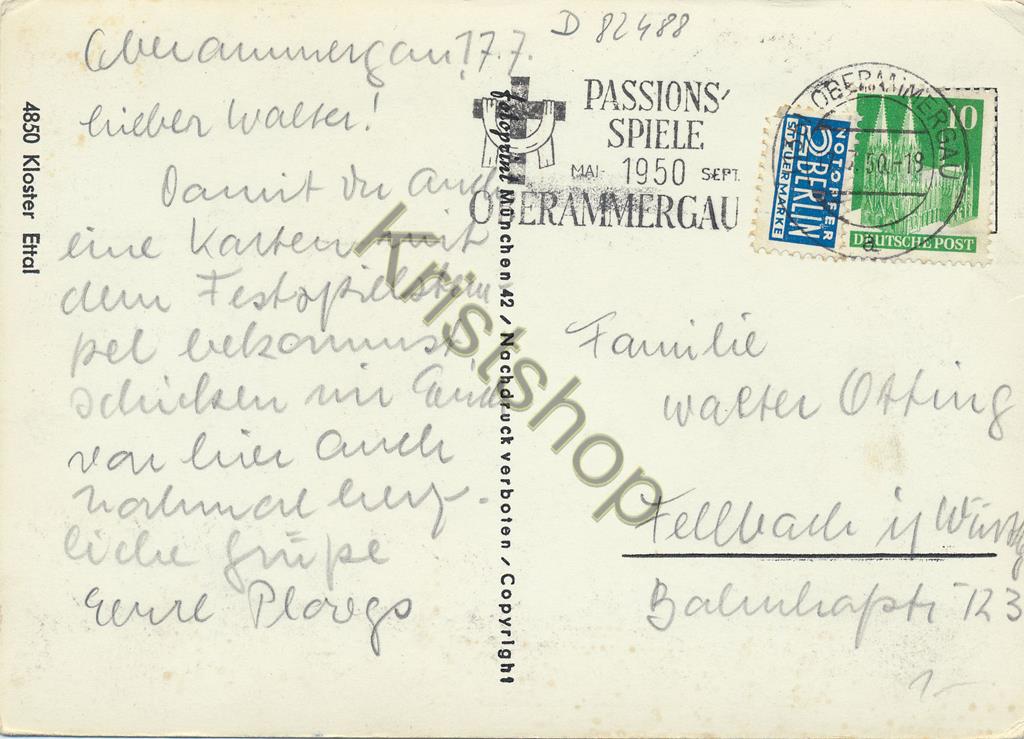 D 82488
Oberammergau, 17.7.
Lieber Walter!
Damit du auch
eine Karten mit
dem Festspielstem
pel bekommst,
schicken wir Euch
von hier auch
nochmal herz-
liche Grüße
Eure
4850 Kloster Ettal
fotoprint München 42 / Nachdruck verboten / Copyright
PASSIONS-
SPIELE
MAI- 1950 SEPT.
OBERAMMERGAU
OBERAMMERGAU
50.-18
a
NOTOPFER
2 BERLIN
STEUERMARKE
10
DEUTSCHE POST
Familie
Walter Otting
Fellbach
Bahnhofstr 123
1-
Kristshop